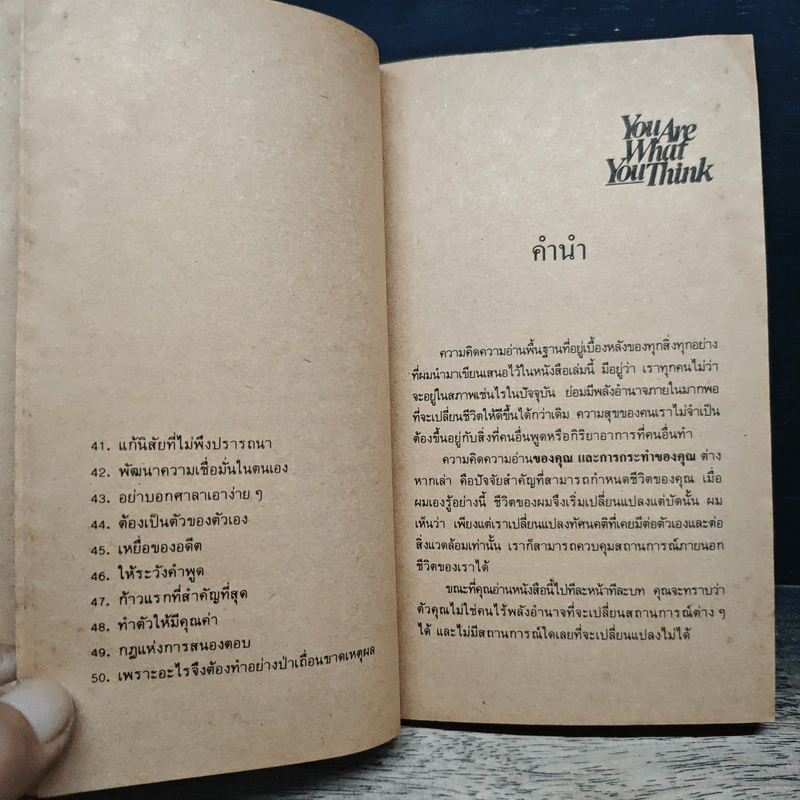 41. แก้นิสัยที่ไม่พึงปรารถนา
42. พัฒนาความเชื่อมั่นในตนเอง
43. อย่าบอกศาลาเอาง่าย ๆ
44. ต้องเป็นตัวของตัวเอง
45. เหยื่อของอดีต
46. ให้ระวังคำพูด
47. ก้าวแรกที่สำคัญที่สุด
48. ทำตัวให้มีคุณค่า
49. กฎแห่งการสนองตอบ
50. เพราะอะไรจึงต้องทำอย่างป่าเถื่อนขาดเหตุผล
You Are
What
You Think
คำนำ
ความคิดความอ่านพื้นฐานที่อยู่เบื้องหลังของทุกสิ่งทุกอย่าง
ที่ผมนำมาเขียนเสนอไว้ในหนังสือเล่มนี้ มีอยู่ว่า เราทุกคนไม่ว่า
จะอยู่ในสภาพเช่นไรในปัจจุบัน ย่อมมีพลังอำนาจภายในมากพอ
ที่จะเปลี่ยนชีวิตให้ดีขึ้นได้กว่าเดิม ความสุขของคนเราไม่จำเป็น
ต้องขึ้นอยู่กับสิ่งที่คนอื่นพูดหรือกิริยาอาการที่คนอื่นทำ
ความคิดความอ่านของคุณ และการกระทำของคุณ ต่าง
หากเล่า คือปัจจัยสำคัญที่สามารถกำหนดชีวิตของคุณ เมื่อ
ผมเองรู้อย่างนี้ ชีวิตของผมจึงเริ่มเปลี่ยนแปลงแต่บัดนั้น ผม
เห็นว่า เพียงแต่เราเปลี่ยนแปลงทัศนคติที่เคยมีต่อตัวเองและต่อ
สิ่งแวดล้อมเท่านั้น เราก็สามารถควบคุมสถานการณ์ภายนอก
ชีวิตของเราได้
ขณะที่คุณอ่านหนังสือนี้ไปทีละหน้าทีละบท คุณจะทราบว่า
ตัวคุณไม่ใช่คนไร้พลังอำนาจที่จะเปลี่ยนสถานการณ์ต่าง ๆ
ได้ และไม่มีสถานการณ์ใดเลยที่จะเปลี่ยนแปลงไม่ได้